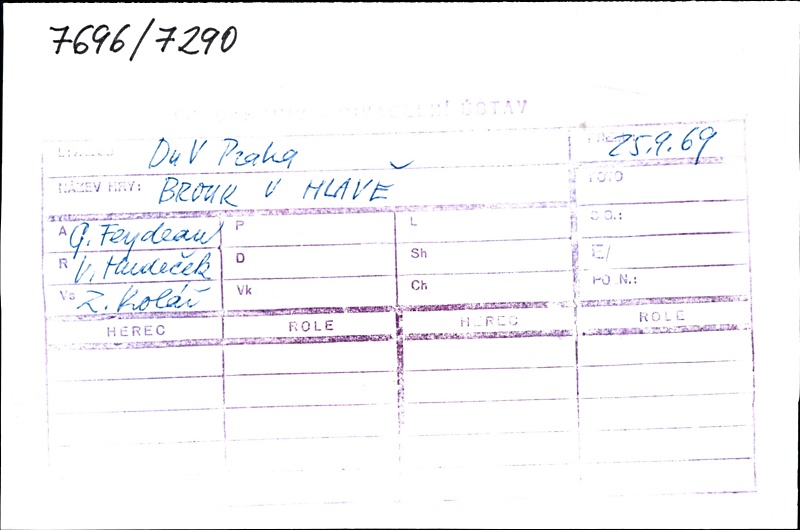 7696/7290
DIVADELNÍ ÚSTAV
DnV Praha 25.9.69
NÁZEV HRY: BROUK V HLAVĚ FOTO
A G. Feydeau P L
R V. Hudeček D Sh
Vs Z. Kolář Vk Ch POZN.:
HEREC ROLE HEREC ROLE